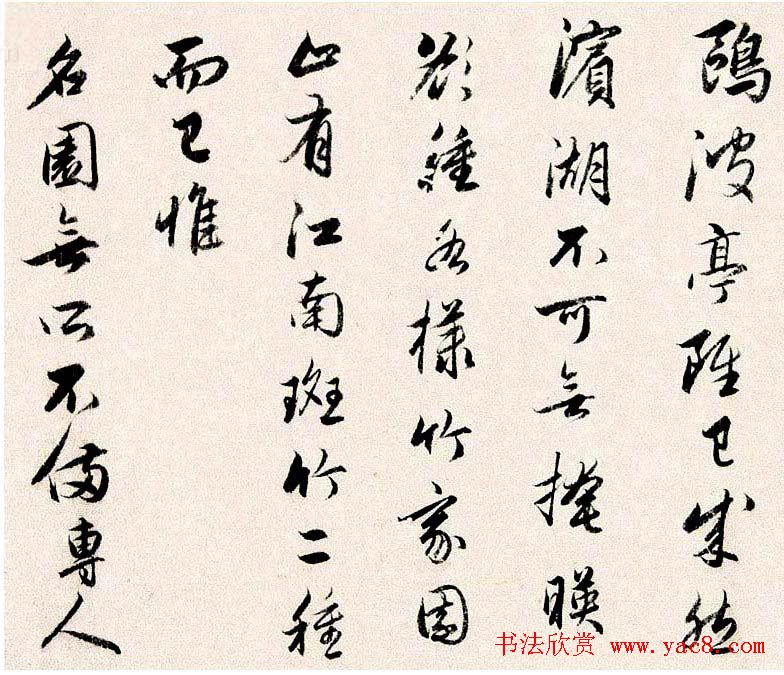 鷗波亭雖已成然
濱湖不可無掩暎
欲種各樣竹家園
止有江南斑竹二種
而已惟
名園無所不備專人
书法欣赏 www.yac8.com